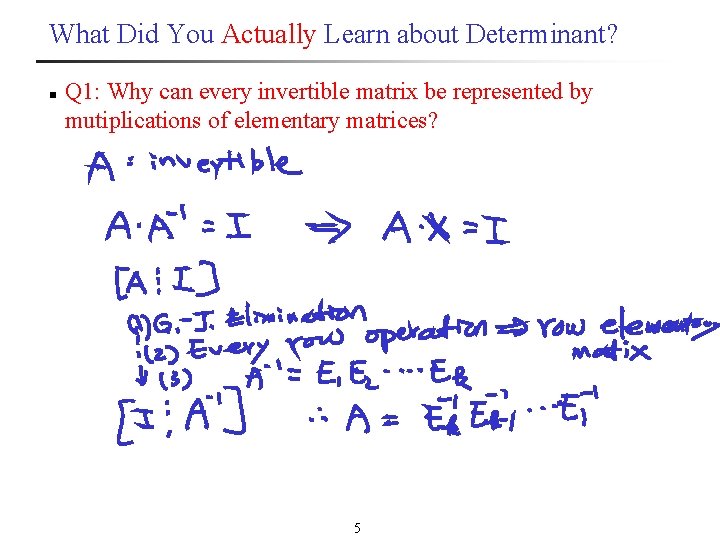 What Did You Actually Learn about Determinant?
Q1: Why can every invertible matrix be represented by
mutiplications of elementary matrices?
A = invertible
A·A⁻¹ = I ⇒ A·X = I
[A ⋮ I]
(1) G.-J. Elimination
(2) Every row operation ⇒ row elementary
matix
(3) A⁻¹ = E₁E₂ ⋯ Eₖ
[I ⋮ A⁻¹] ∴ A = Eₖ⁻¹ Eₖ₋₁⁻¹ ⋯ E₁⁻¹
5